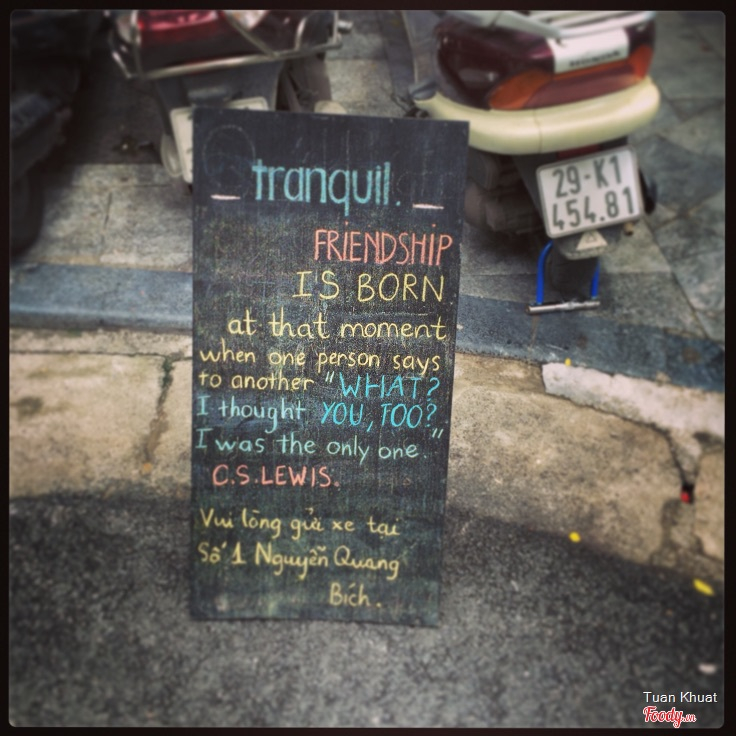 tranquil.
FRIENDSHIP
IS BORN
at that moment
when one person says
to another "WHAT?
I thought YOU, TOO?
I was the only one."
C.S.LEWIS.
Vui lòng gửi xe tại
Số 1 Nguyễn Quang
Bích.
HONDA
29-K1
454.81
Tuan Khuat
Foody.vn